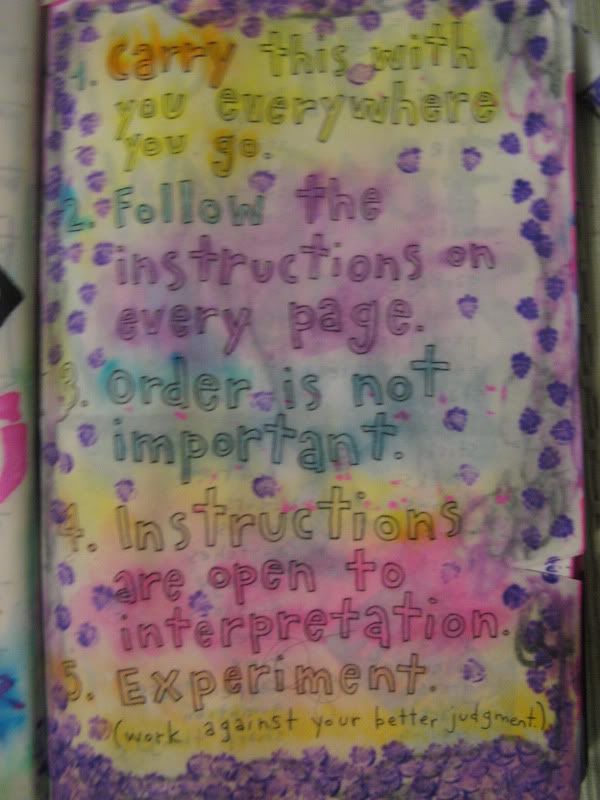 1. Carry this with
you everywhere
you go.
2. Follow the
instructions on
every page.
3. Order is not
important.
4. Instructions
are open to
interpretation.
5. Experiment.
(work against your better judgment.)